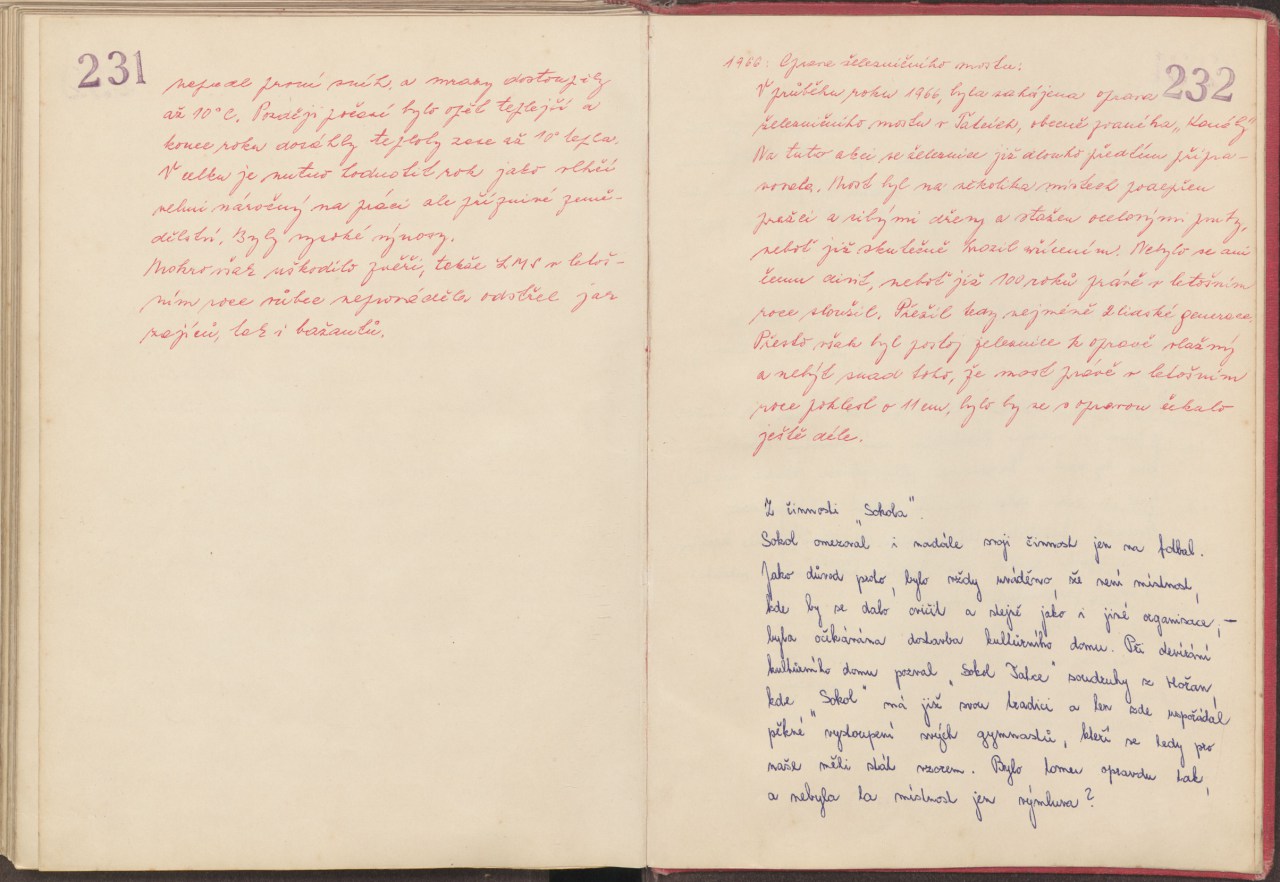 231
nepadl první sníh, a mrazy dostoupily
až 10°C. Později počasí bylo opět teplejší a
konce roku dosáhly teploty zase až 10° tepla.
V celku je nutno hodnotit rok jako vlhčí
velmi náročný na práci ale příznivé země-
dělství. Byly vysoké výnosy.
Mokro však uškodilo zvěři, takže LMS v letoš-
ním roce vůbec neprováděla odstřel jak
zajíců, tak i bažantů.
232
1966: Oprava železničního mostu:
V průběhu roku 1966, byla zahájena oprava
železničního mostu v Tatcích, obecně zvaného „Kanály"
Na tuto akci, se železnice již dlouho předtím připra-
vovala. Most byl na několika místech podepřen
pražci a silnými dřevy a stažen ocelovými pruty,
neboť již skutečně hrozil zřícením. Nebylo se ani
čemu divit, neboť již 100 roků právě v letošním
roce sloužil. Přežil tedy nejméně 2 lidské generace.
Přesto však byl postoj železnice k opravě vlažný
a nebýt snad toho, že most právě v letošním
roce poklesl o 11 cm, bylo by se s opravou čekalo
ještě déle.
Z činnosti „Sokola"
Sokol omezoval i nadále svoji činnost jen na fotbal.
Jako důvod proto, bylo vždy uváděno, že není místnost,
kde by se dalo cvičit a stejně jako i jiné organisace, –
byla očekávána dostavba kulturního domu. Při
kulturního domu pozval „Sokol Tatce" soudruhy z Hořan,
kde „Sokol" má již svou tradici a ten zde uspořádal
pěkné vystoupení svých gymnastů, kteří se tedy pro
naše měli stát vzorem. Bylo tomu opravdu tak,
a nebyla ta místnost jen výmluva?